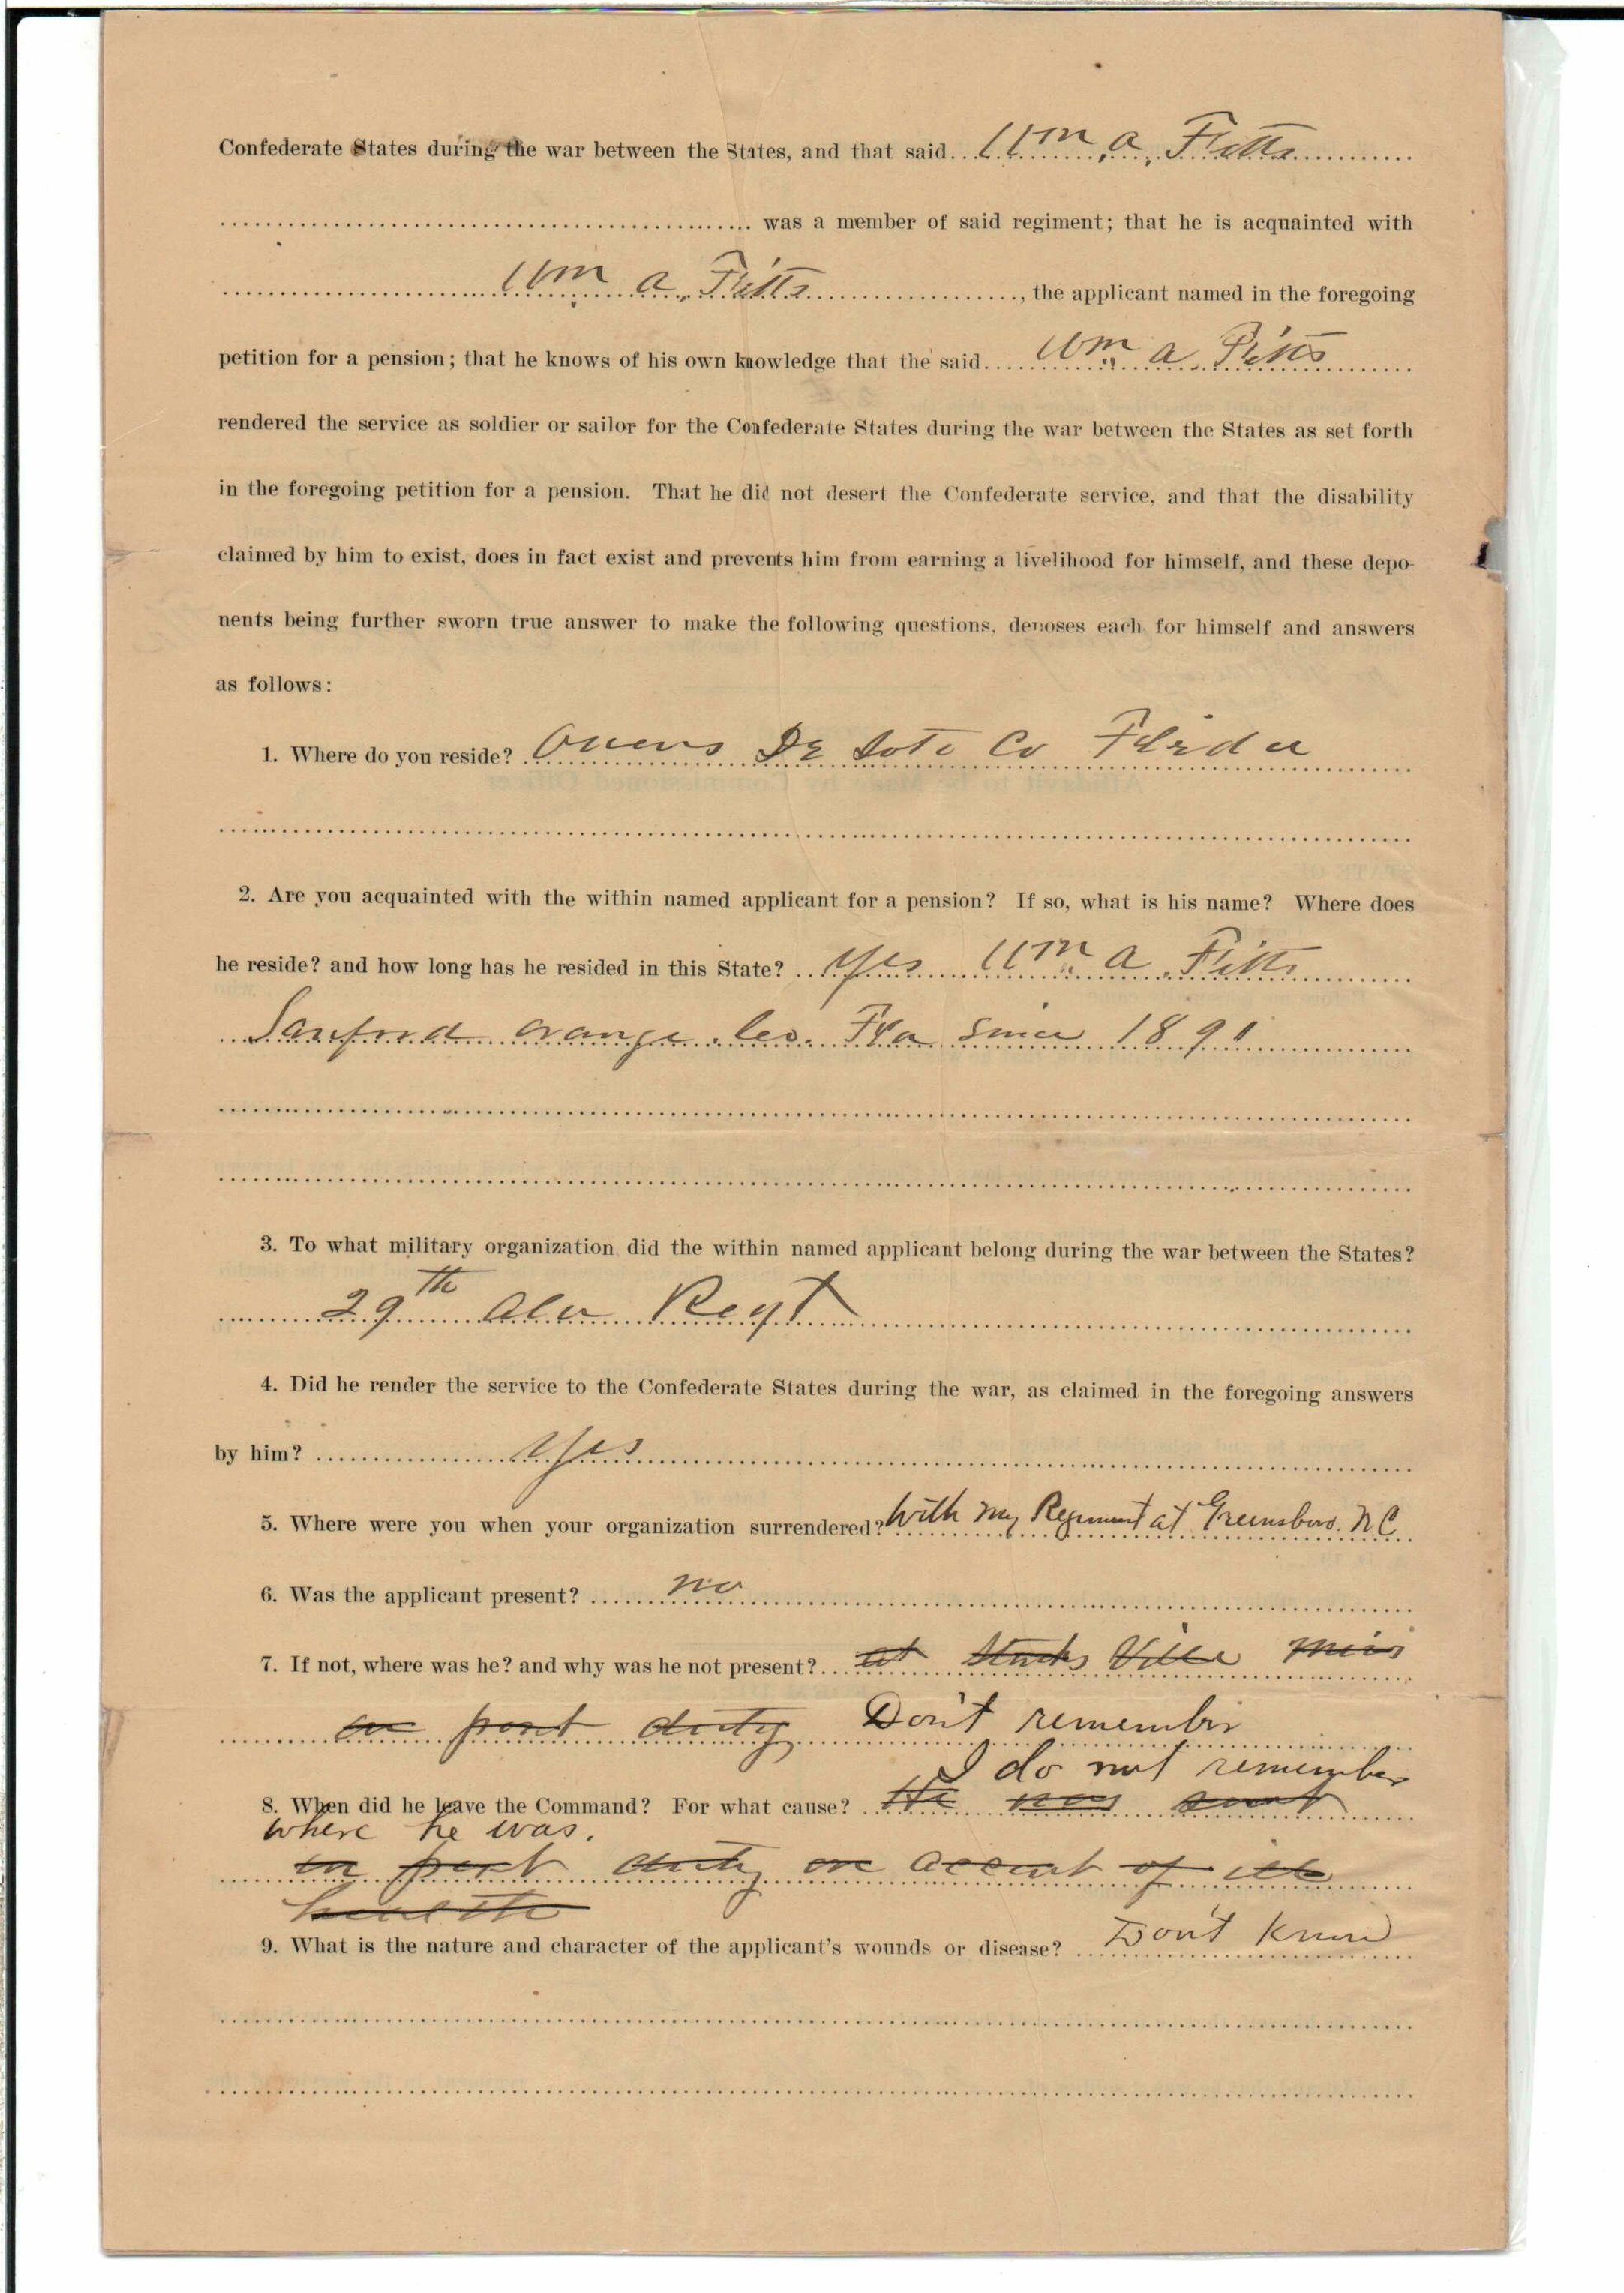 Confederate States during the war between the States, and that said Wm. A. Fitts
was a member of said regiment; that he is acquainted with
Wm. A. Fitts, the applicant named in the foregoing
petition for a pension; that he knows of his own knowledge that the said Wm. A. Fitts
rendered the service as soldier or sailor for the Confederate States during the war between the States as set forth
in the foregoing petition for a pension. That he did not desert the Confederate service, and that the disability
claimed by him to exist, does in fact exist and prevents him from earning a livelihood for himself, and these depo-
nents being further sworn true answer to make the following questions, deposes each for himself and answers
as follows:
1. Where do you reside? Owens De Soto Co Florida
2. Are you acquainted with the within named applicant for a pension? If so, what is his name? Where does
he reside? and how long has he resided in this State? Yes Wm. A. Fitts
Sanford Orange Co. Fla since 1891
3. To what military organization did the within named applicant belong during the war between the States?
29th Ala Regt
4. Did he render the service to the Confederate States during the war, as claimed in the foregoing answers
by him? Yes
5. Where were you when your organization surrendered? With my Regiment at Greensboro. N C
6. Was the applicant present? no
7. If not, where was he? and why was he not present? at Ville Miss
on post duty Don't remember
I do not remember
8. When did he leave the Command? For what cause? He was sent
where he was.
on post duty on account of ill
health
9. What is the nature and character of the applicant's wounds or disease? Don't Know